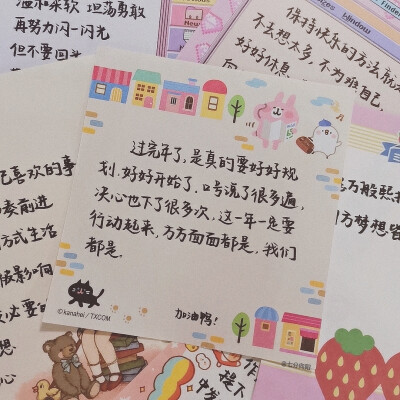 温和柔软 坦荡勇敢
再努力闪一闪光
但不要回头
保持快乐的方法就
不去想太多,不为难自己.
好好休息
过完年了,是真的要好好规
划.好好开始了,口号说了很多遍,
决心也下了很多次,这一年一定要
行动起来,方方面面都是,我们
都是.
加油鸭!
©kanahei / TXCOM
己喜欢的事
前进
方式生活
影响
必要的
想
心
万般熙
梦想